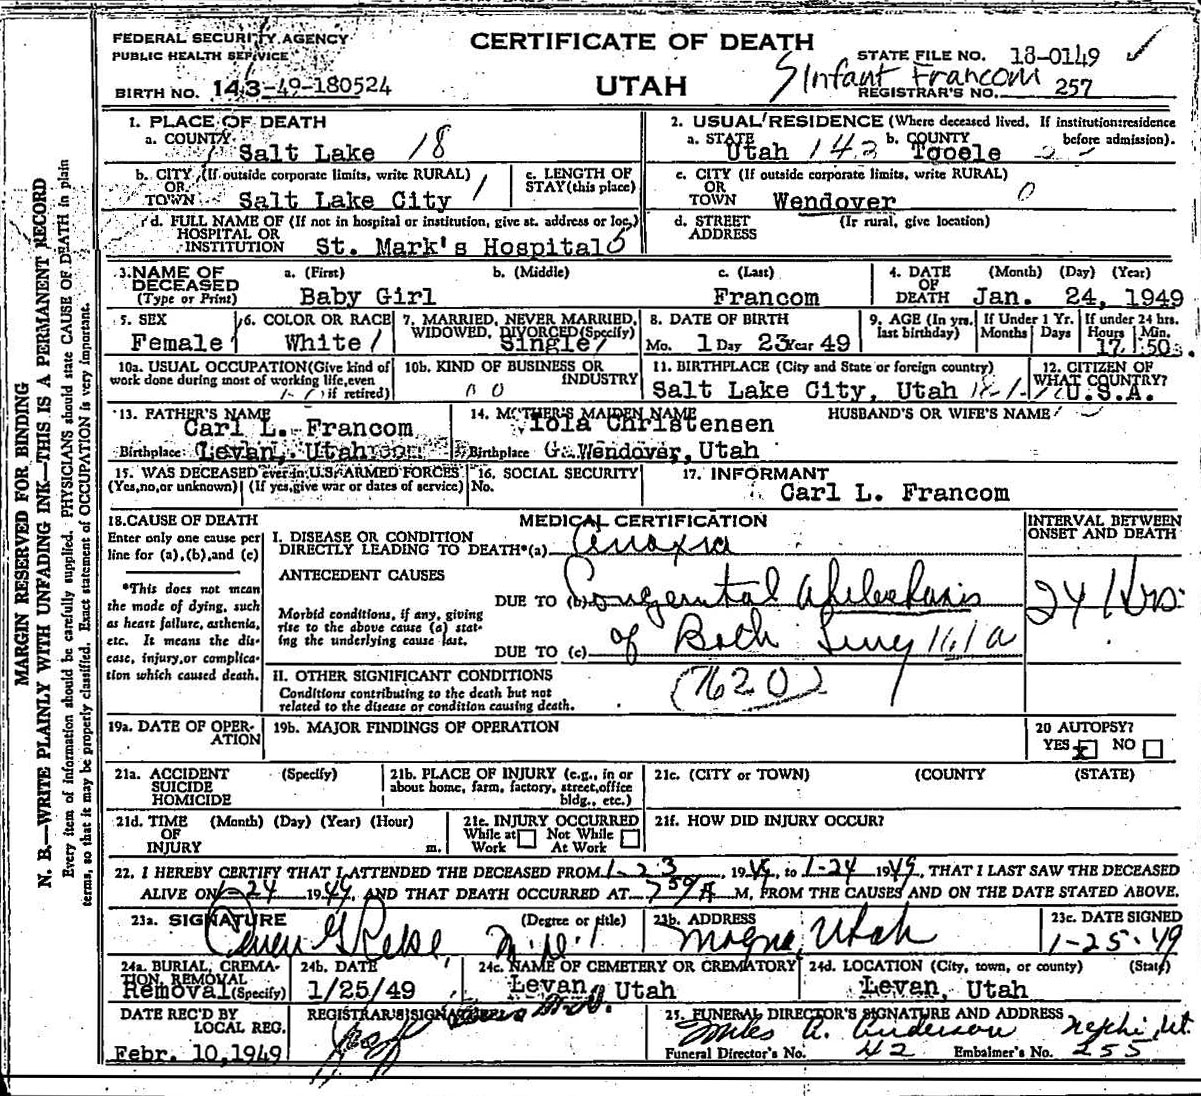 FEDERAL SECURITY AGENCY
PUBLIC HEALTH SERVICE
BIRTH NO. 143-49-180524
CERTIFICATE OF DEATH
UTAH
STATE FILE NO. 18-0149
Infant Francom
REGISTRAR'S NO. 257
MARGIN RESERVED FOR BINDING
N. B.—WRITE PLAINLY WITH UNFADING INK—THIS IS A PERMANENT RECORD
Every item of information should be carefully supplied. PHYSICIANS should state CAUSE OF DEATH in plain
terms, so that it may be properly classified. Exact statement of OCCUPATION is very important.
1. PLACE OF DEATH
a. COUNTY Salt Lake 18
b. CITY (If outside corporate limits, write RURAL)
OR
TOWN Salt Lake City 1
c. LENGTH OF
STAY (this place)
d. FULL NAME OF (If not in hospital or institution, give st. address or loc.)
HOSPITAL OR
INSTITUTION St. Mark's Hospital 5
2. USUAL RESIDENCE (Where deceased lived. If institution: residence
before admission).
a. STATE Utah 142 b. COUNTY Tooele
c. CITY (If outside corporate limits, write RURAL)
OR
TOWN Wendover 0
d. STREET (If rural, give location)
ADDRESS
3. NAME OF
DECEASED
(Type or Print)
a. (First) Baby Girl
b. (Middle)
c. (Last) Francom
4. DATE (Month) (Day) (Year)
OF
DEATH Jan. 24, 1949
5. SEX
Female
6. COLOR OR RACE
White 1
7. MARRIED, NEVER MARRIED,
WIDOWED, DIVORCED (Specify)
Single 1
8. DATE OF BIRTH
Mo. 1 Day 23 Year 49
9. AGE (In yrs. last birthday)
If Under 1 Yr. Months Days
If under 24 hrs. Hours Min.
17 50
10a. USUAL OCCUPATION (Give kind of
work done during most of working life, even
if retired)
10b. KIND OF BUSINESS OR
INDUSTRY
11. BIRTHPLACE (City and State or foreign country)
Salt Lake City, Utah
12. CITIZEN OF
WHAT COUNTRY?
U.S.A.
13. FATHER'S NAME
Carl L. Francom
Birthplace Levan, Utah
14. MOTHER'S MAIDEN NAME
Iola Christensen
Birthplace Wendover, Utah
HUSBAND'S OR WIFE'S NAME
15. WAS DECEASED ever in U.S. ARMED FORCES
(Yes, no, or unknown) (If yes, give war or dates of service)
16. SOCIAL SECURITY
No.
17. INFORMANT
Carl L. Francom
18. CAUSE OF DEATH
Enter only one cause per
line for (a), (b), and (c)
*This does not mean
the mode of dying, such
as heart failure, asthenia,
etc. It means the dis-
ease, injury, or complica-
tion which caused death.
MEDICAL CERTIFICATION
I. DISEASE OR CONDITION
DIRECTLY LEADING TO DEATH*(a) Anoxia
ANTECEDENT CAUSES
DUE TO (b) Congenital Atelectasis
Morbid conditions, if any, giving
rise to the above cause (a) stat-
ing the underlying cause last.
DUE TO (c) of Both Lung
II. OTHER SIGNIFICANT CONDITIONS
Conditions contributing to the death but not
related to the disease or condition causing death.
(7620)
INTERVAL BETWEEN
ONSET AND DEATH
24 Hrs.
19a. DATE OF OPER-
ATION
19b. MAJOR FINDINGS OF OPERATION
20 AUTOPSY?
YES x NO
21a. ACCIDENT (Specify)
SUICIDE
HOMICIDE
21b. PLACE OF INJURY (e.g., in or
about home, farm, factory, street, office
bldg., etc.)
21c. (CITY or TOWN) (COUNTY) (STATE)
21d. TIME (Month) (Day) (Year) (Hour)
OF
INJURY m.
21e. INJURY OCCURRED
While at Work Not While At Work
21f. HOW DID INJURY OCCUR?
22. I HEREBY CERTIFY THAT I ATTENDED THE DECEASED FROM 1-23, 1949, to 1-24 1949, THAT I LAST SAW THE DECEASED
ALIVE ON 1-24 1949, AND THAT DEATH OCCURRED AT 7 50 A M, FROM THE CAUSES AND ON THE DATE STATED ABOVE.
23a. SIGNATURE (Degree or title)
M.D.
23b. ADDRESS
Magna, Utah
23c. DATE SIGNED
1-25-49
24a. BURIAL, CREMA-
TION, REMOVAL
Removal (Specify)
24b. DATE
1/25/49
24c. NAME OF CEMETERY OR CREMATORY
Levan, Utah
24d. LOCATION (City, town, or county) (State)
Levan, Utah
DATE REC'D BY
LOCAL REG.
Febr. 10, 1949
REGISTRAR'S SIGNATURE
25. FUNERAL DIRECTOR'S SIGNATURE AND ADDRESS
Miles A. Anderson Nephi, Ut.
Funeral Director's No. 42 Embalmer's No. 255